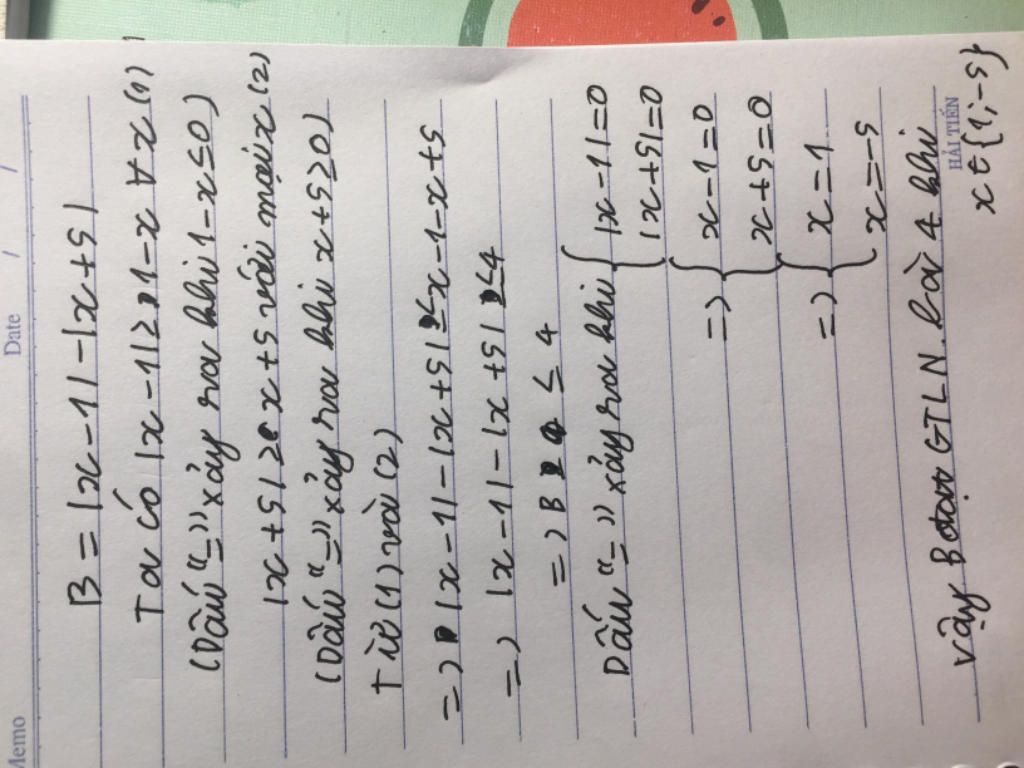 Memo Date / /
B = |x-1| - |x+5|
Ta có |x-1| ≥ 1-x ∀x (1)
(Dấu "=" xảy ra khi 1-x ≤ 0)
|x+5| ≥ x+5 với mọi x (2)
(Dấu "=" xảy ra khi x+5 ≥ 0)
Từ (1) và (2)
=> |x-1| - |x+5| ≤ x-1-x+5
=> |x-1| - |x+5| ≤ 4
=> B ≤ 4
Dấu "=" xảy ra khi { |x-1| = 0
|x+5| = 0
=> { x-1 = 0
x+5 = 0
=> { x = 1
x = -5
Vậy B đạt GTLN là 4 khi
HẢI TIẾN
x ∈ {1; -5}